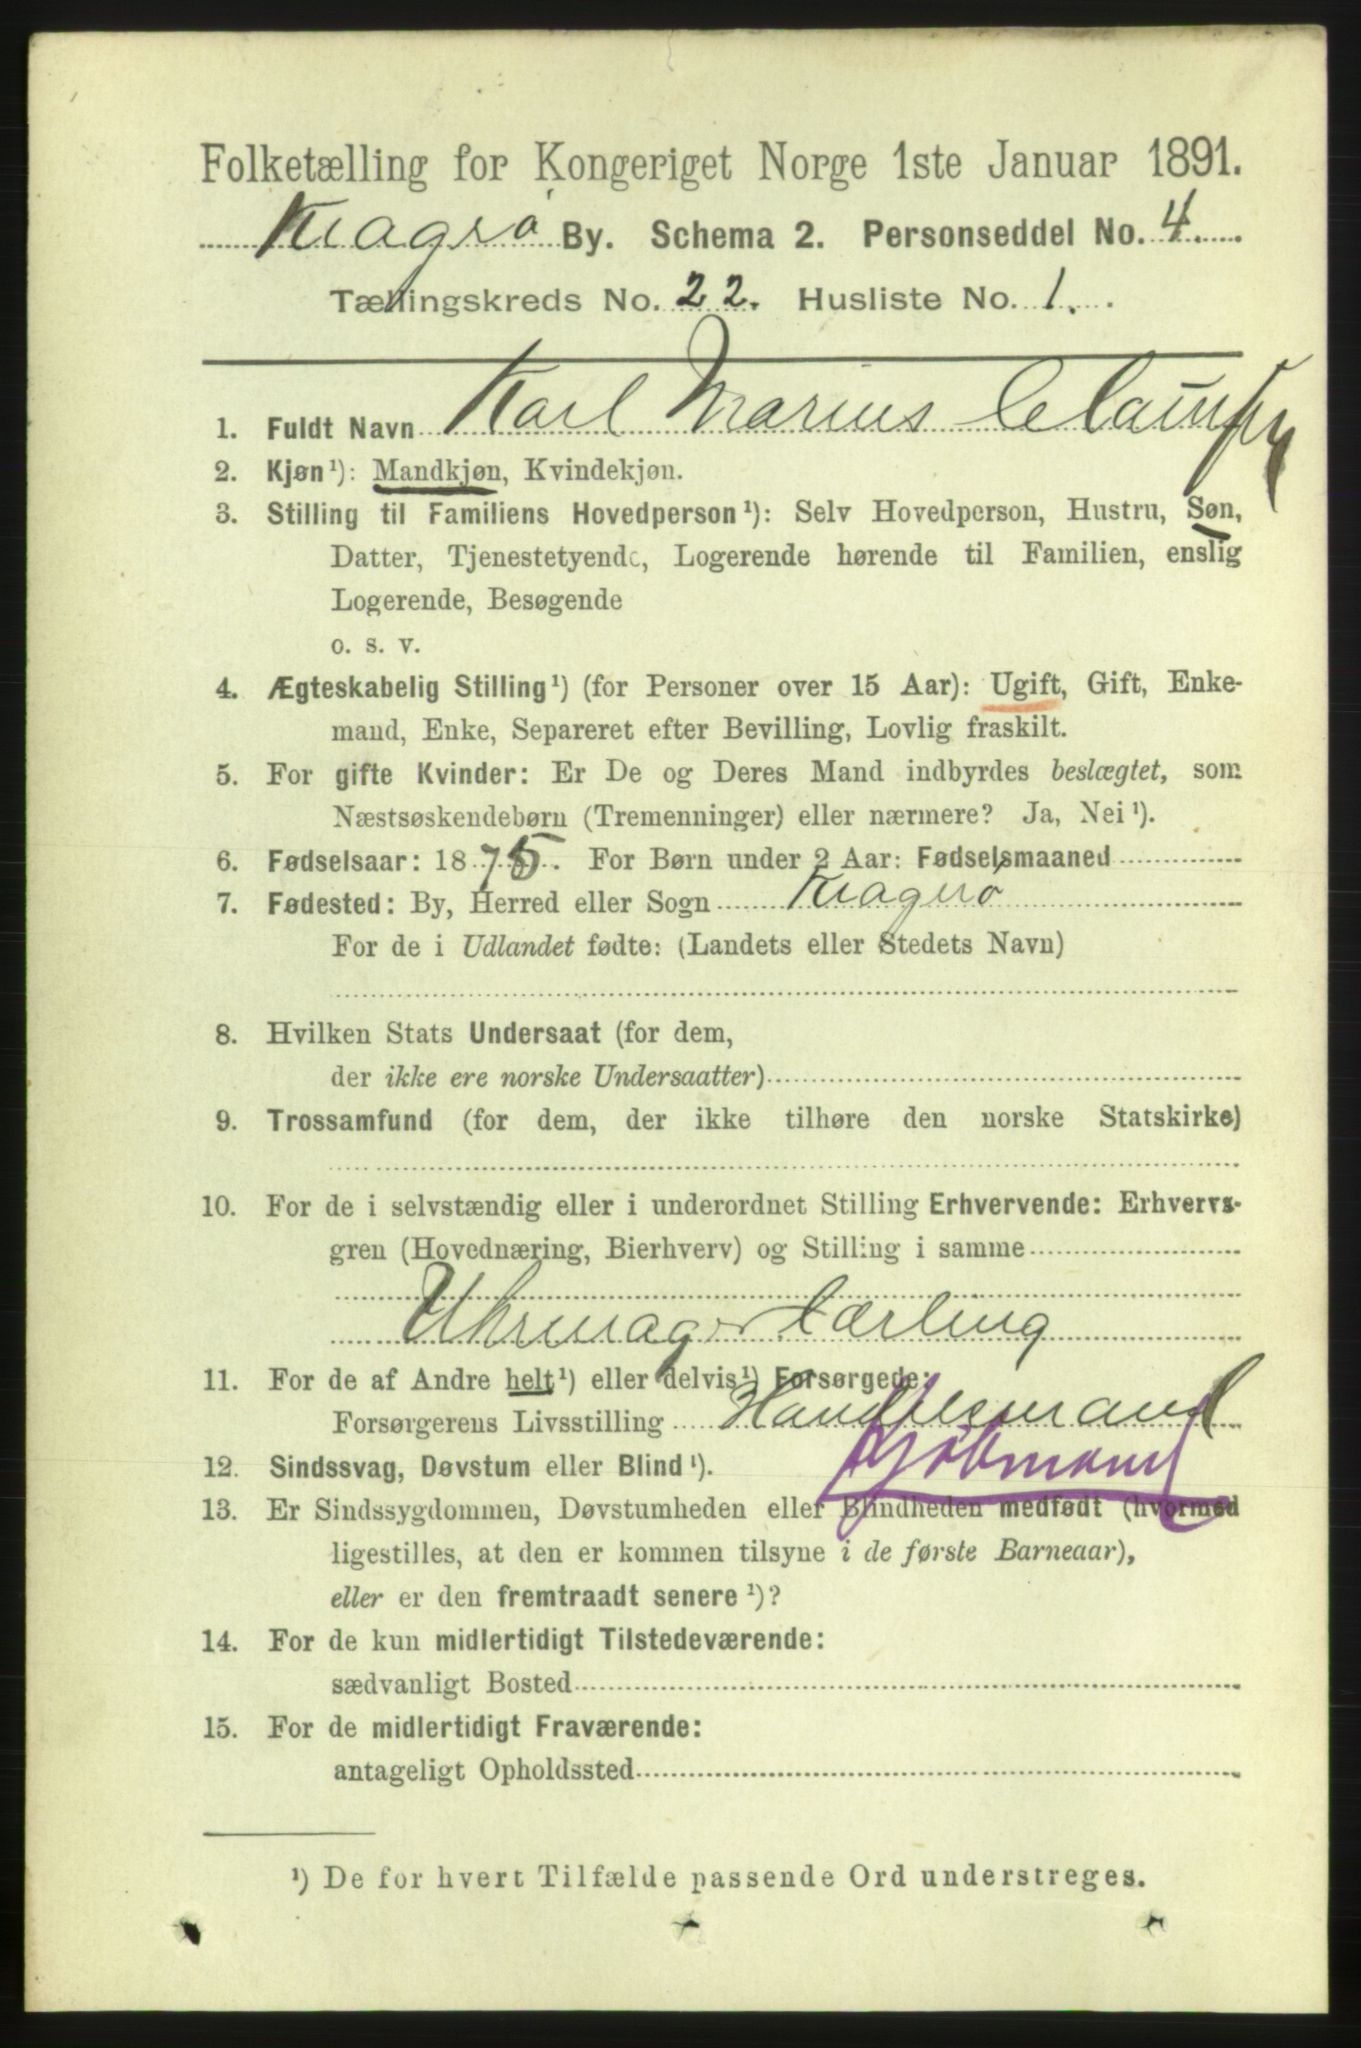 Folketælling for Kongeriget Norge 1ste Januar 1891.
Kragerø By. Schema 2. Personseddel No. 4.
Tællingskreds No. 22. Husliste No. 1.
1. Fuldt Navn Karl Marius
2. Kjøn ¹): Mandkjøn, Kvindekjøn.
3. Stilling til Familiens Hovedperson ¹): Selv Hovedperson, Hustru, Søn,
Datter, Tjenestetyende, Logerende hørende til Familien, enslig
Logerende, Besøgende
o. s. v.
4. Ægteskabelig Stilling ¹) (for Personer over 15 Aar): Ugift, Gift, Enke-
mand, Enke, Separeret efter Bevilling, Lovlig fraskilt.
5. For gifte Kvinder: Er De og Deres Mand indbyrdes beslægtet, som
Næstsøskendebørn (Tremenninger) eller nærmere? Ja, Nei ¹).
6. Fødselsaar: 1875. For Børn under 2 Aar: Fødselsmaaned
7. Fødested: By, Herred eller Sogn Kragerø
For de i Udlandet fødte: (Landets eller Stedets Navn)
8. Hvilken Stats Undersaat (for dem,
der ikke ere norske Undersaatter)
9. Trossamfund (for dem, der ikke tilhøre den norske Statskirke)
10. For de i selvstændig eller i underordnet Stilling Erhvervende: Erhvervs-
gren (Hovednæring, Bierhverv) og Stilling i samme
Uhrmager Lærling
11. For de af Andre helt ¹) eller delvis ¹) Forsørgede:
Forsørgerens Livsstilling Handelsmand
Kjøbmand
12. Sindssvag, Døvstum eller Blind ¹).
13. Er Sindssygdommen, Døvstumheden eller Blindheden medfødt (hvormed
ligestilles, at den er kommen tilsyne i de første Barneaar),
eller er den fremtraadt senere ¹)?
14. For de kun midlertidigt Tilstedeværende:
sædvanligt Bosted
15. For de midlertidigt Fraværende:
antageligt Opholdssted
¹) De for hvert Tilfælde passende Ord understreges.